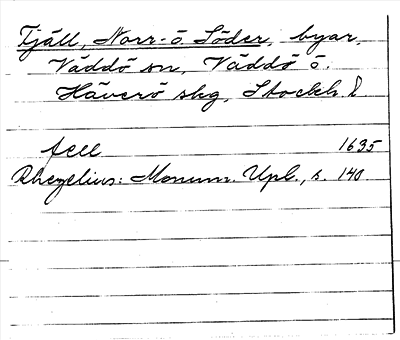 Tjäll, Norr- o. Söder, byar,
Väddö sn, Väddö o.
Häverö skg, Stockh. l.
fell 1635
Rhezelius: Monum. Upl., s. 140.